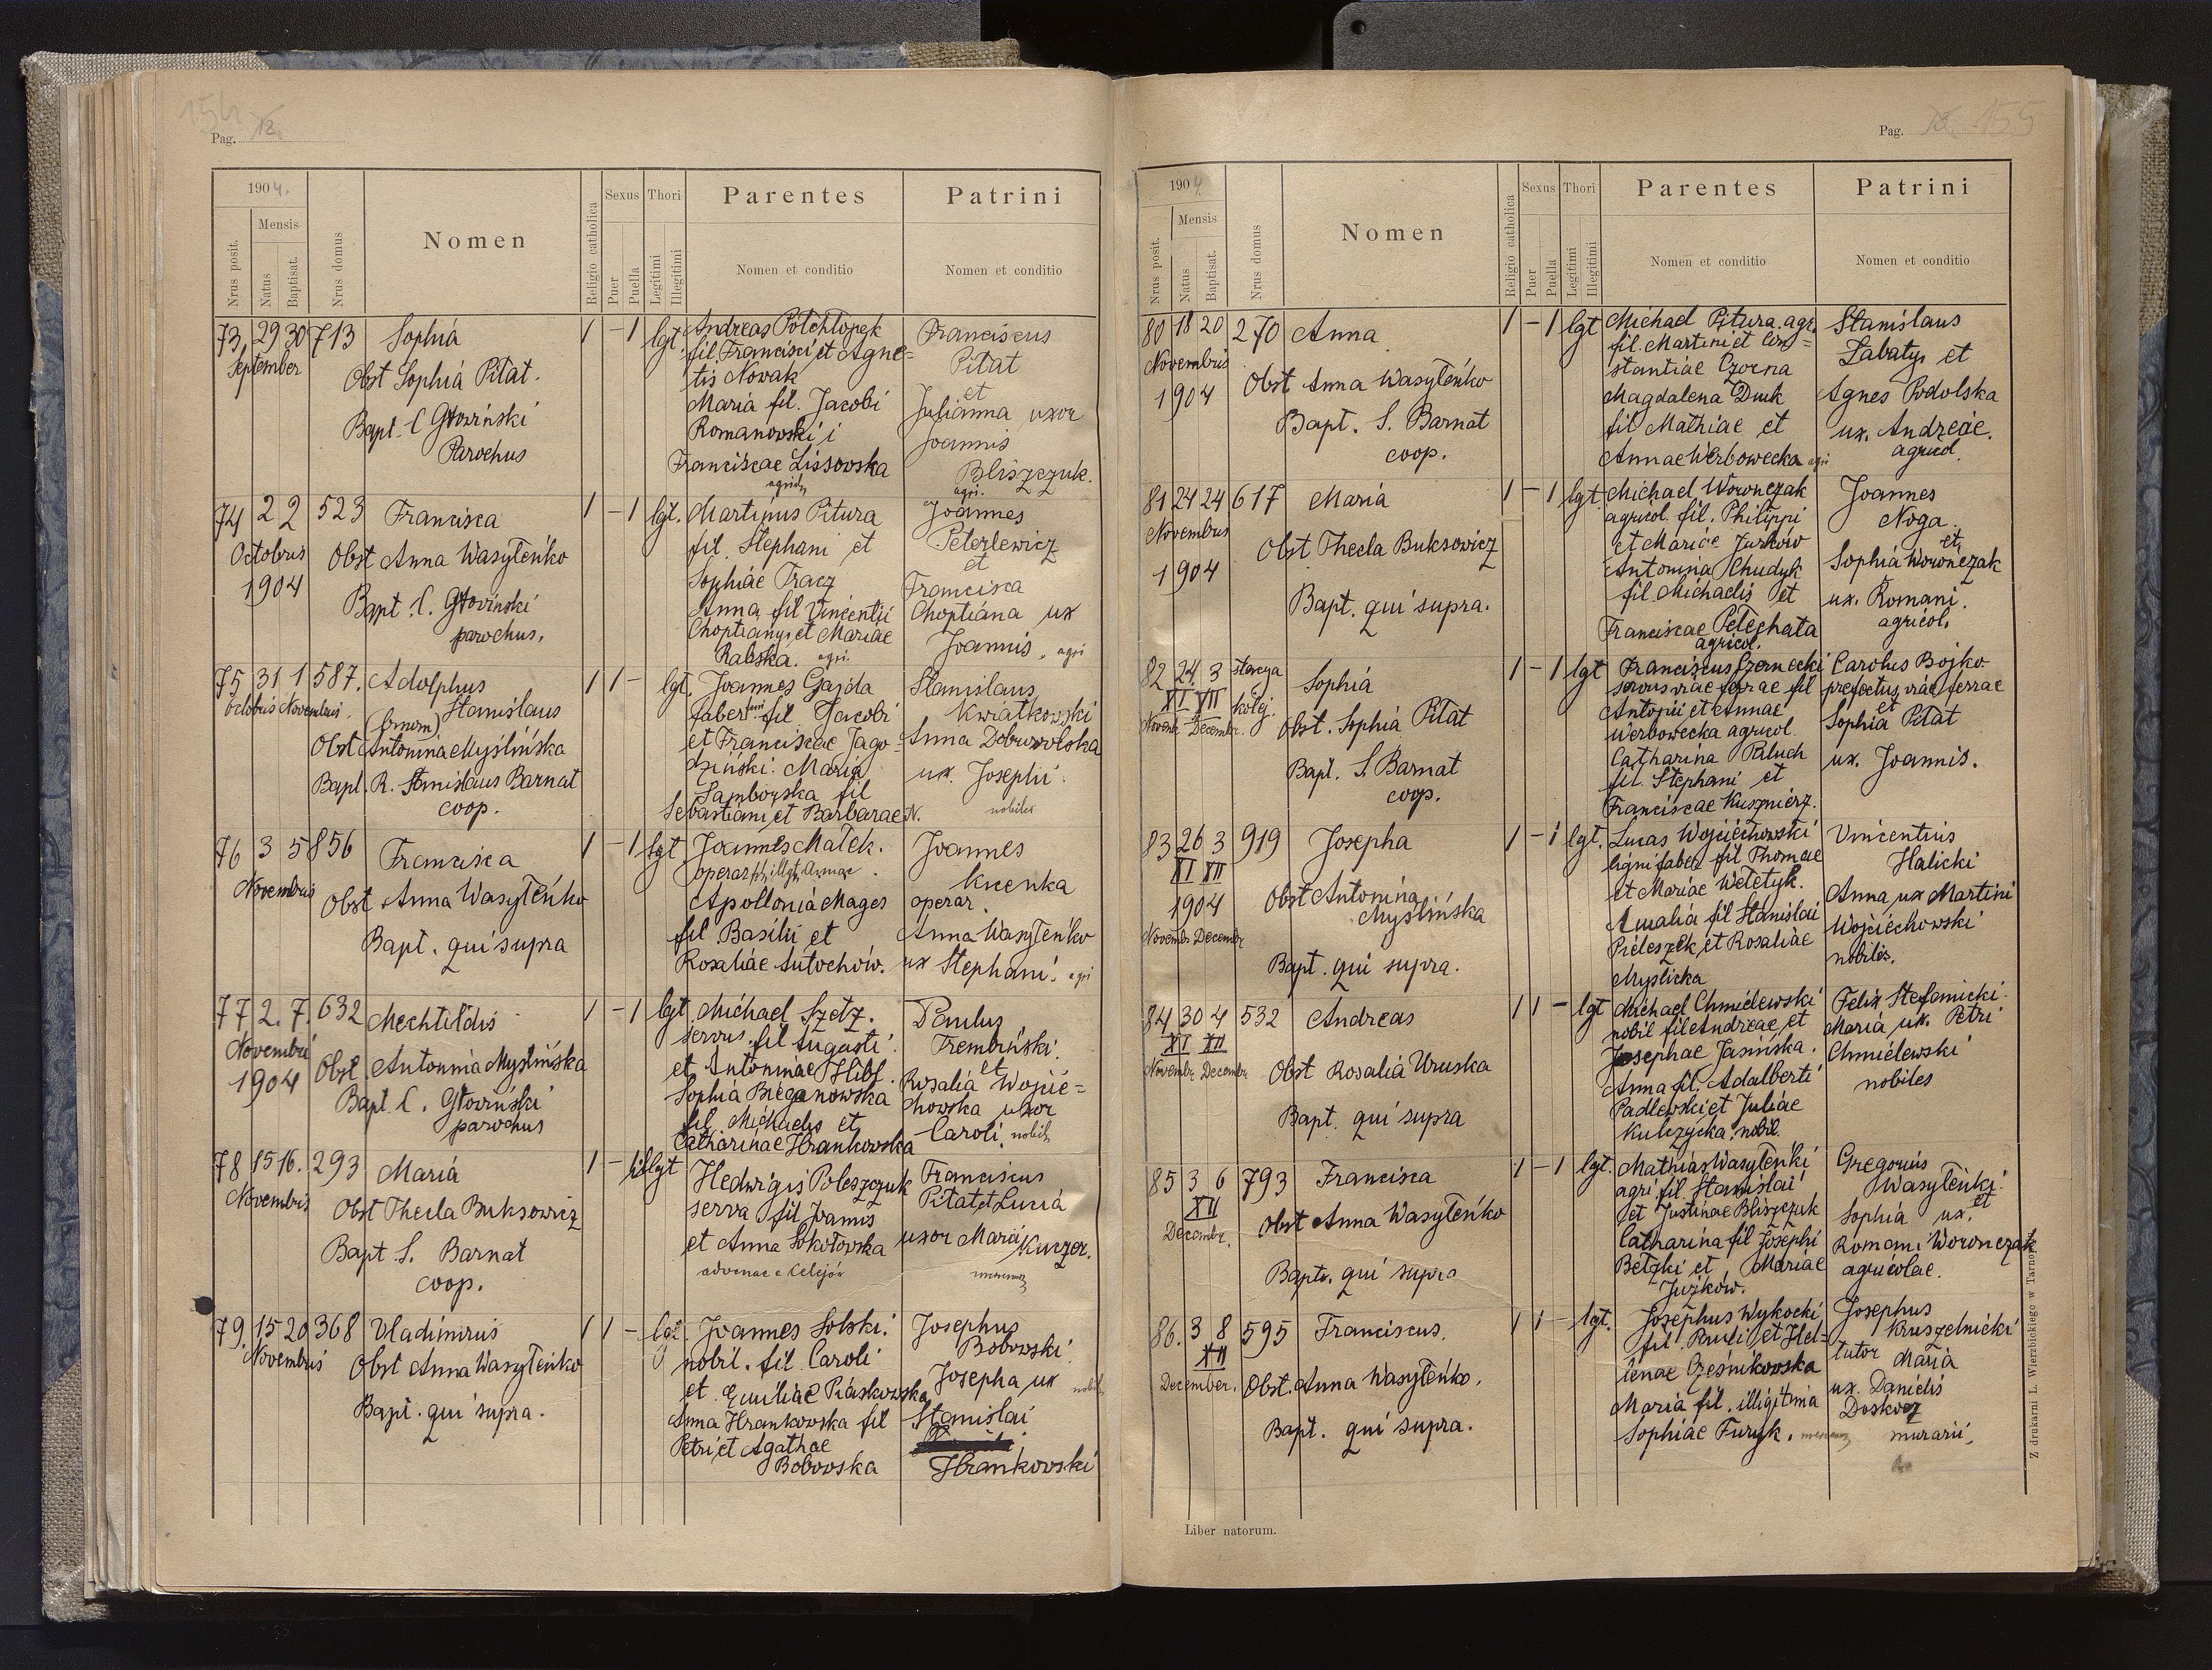 154
Pag. 12.
1904.
Nrus posit.
Mensis
Natus
Baptisat.
Nrus domus
Nomen
Religio catholica
Sexus
Puer
Puella
Thori
Legitimi
Illegitimi
Parentes
Nomen et conditio
Patrini
Nomen et conditio
73, 29 30 713 Sophia 1 - 1 lgt.
September
Obst Sophia Pitat.
Bapt. C Głowiński
Parochus
Andreas Potchłopek
fil. Francisci et Agne-
tis Novak
Maria fil. Jacobi
Romanowski i
Franciscae Lissowska
Franciscus
Pitat
et
Julianna uxor
Joannis
Bliszczuk.
agri.
74 2 2 523 Francisca 1 - 1 lgt.
Octobris
1904
Obst Anna Wasyleńko
Bapt. C. Głowiński
parochus.
Martinus Pitura
fil. Stephani et
Sophiae Tracz
Anna fil Vincentii
Choptiany et Mariae
Rabska. agri.
Joannes
Peterlewicz
et
Francisca
Choptiana ux
Joannis, agri
75 31 1 587. Adolphus 1 1 - lgt.
Octobris Novembris.
Stanislaus
(binom)
Obst Antonina Myślińska
Bapt. R. Stanislaus Barnat
coop.
Joannes Gajda
faber fil Jacobi
et Franciscae Jago-
dziński. Maria
Samborska fil
Sebastiani et Barbarae N.
Stanislaus
Kwiatkowski
Anna Dobrowolska
ux. Josephi.
nobiles
76 3 5 856 Francisca 1 - 1 lgt
Novembris
Obst Anna Wasyleńko
Bapt. qui supra
Joannes Małek.
operar
Apollonia Mages
fil Basilii et
Rosaliae Antochów.
Joannes
Kucenka
operar.
Anna Wasyleńko
ux Stephani. agri
77 2. 7. 632 Mechtildis 1 - 1 lgt.
Novembri
1904
Obst. Antonina Myślińska
Bapt. C. Głowiński
parochus
Michael Szetz.
servus. fil Augusti
et Antoninae Hibl.
Sophia Bieganowska
fil Michaelis et
Catharinae Hrankowska
Paulus
Trembiński.
et
Rosalia Wojcie-
chowska uxor
Caroli. nobil.
78 15 16. 293 Maria 1 - 1 illgt
Novembris
Obst Thecla Buksowicz
Bapt. S. Barnat
coop.
Hedwigis Poleszczuk
serva fil Joannis
et Anna Sokołowska
Franciscus
Pitat et Lucia
uxor Maria Kuczer.
79. 15 20 368 Vladimirus 1 1 - lgt.
Novembris
Obst Anna Wasyleńko
Bapt. qui supra.
Joannes Solski.
nobil. fil Caroli
et Emiliae Piaskowska
Anna Hrankowska fil
Petri et Agathae
Bobowska
Josephus
Bobowski.
Josepha ux nobil.
Stanislai
Hrankowski
Pag. 13. 155
1904
Nrus posit.
Mensis
Natus
Baptisat.
Nrus domus
Nomen
Religio catholica
Sexus
Puer
Puella
Thori
Legitimi
Illegitimi
Parentes
Nomen et conditio
Patrini
Nomen et conditio
80 18 20 270 Anna 1 - 1 lgt
Novembris
1904
Obst Anna Wasyleńko
Bapt. S. Barnat
coop.
Michael Pitura agr.
fil. Martini et Con-
stantiae Czorna
Magdalena Duck
fil Mathiae et
Annae Werbowecka agri
Stanislaus
Zabatyj et
Agnes Podolska
ux. Andreae.
agricol.
81 24 24 617 Maria 1 - 1 lgt
Novembris
1904
Obst Thecla Buksowicz
Bapt. qui supra.
Michael Worończak
agricol. fil. Philippi
et Mariae Jurków
Antonina Chudyk
fil Michaelis et
Franciscae Pelechata
agricol.
Joannes
Noga.
et
Sophia Worończak
ux. Romani.
agricol.
82 24. 3 stacya Sophia 1 - 1 lgt
XI XII kolej.
Novembr. Decembr.
Obst. Sophia Pitat
Bapt. S. Barnat
coop.
Franciscus Czernecki
servus viae ferrae fil
Antonii et Annae
Werbowecka agricol.
Catharina Paluch
fil. Stephani et
Franciscae Kuszmierz.
Carolus Bojko
prefectus viae ferrae
et
Sophia Pitat
ux. Joannis.
83 26 3 919 Josepha 1 - 1 lgt.
XI XII
1904
Novembr. Decembr
Obst Antonina
Myślińska
Bapt. qui supra.
Lucas Wojciechowski
ligni faber fil Thomae
et Mariae Wetetyk.
Amalia fil Stanislai
Pieleszek et Rosaliae
Myslicka
Vincentius
Halicki
Anna ux Martini
Wojciechowski
nobiles.
84 30 4 532 Andreas 1 1 - lgt
XI XII
Novembr. Decembr
Obst Rosalia Uruska
Bapt. qui supra
Michael Chmielewski
nobil fil Andreae et
Josephae Jasińska.
Anna fil. Adalberti
Padlewski et Juliae
Kulczycka. nobil.
Felix Stefanicki.
Maria ux. Petri
Chmielewski
nobiles
85 3 6 793 Francisca 1 - 1 lgt.
XII
Decembr.
Obst Anna Wasyleńko
Bapt. qui supra
Mathias Wasyleńki
agri fil. Stanislai
et Justinae Bliszczuk
Catharina fil Josephi
Betzki et Mariae
Jużków.
Gregorius
Wasyleńki.
et
Sophia ux.
Romani Worończak
agricolae.
86. 3 8 595 Franciscus. 1 1 - lgt.
XII
December.
Obst. Anna Wasyleńko.
Bapt. qui supra.
Josephus Wykocki
fil. Pauli et Hel-
lenae Cześnikowska
Maria fil. illigitima
Sophiae Furyk.
Josephus
Kruszelnicki
tutor Maria
ux. Danielis
Doskocz
murarii,
Liber natorum.
Z drukarni L. Wierzbickiego w Tarnop